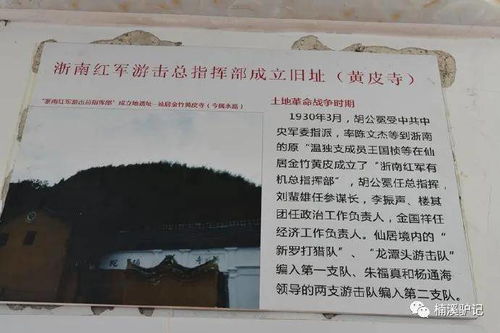 浙南红军游击总指挥部成立旧址（黄皮寺）
"浙南红军游击总指挥部"成立地遗址—仙居金竹黄皮寺（今属永嘉）
土地革命战争时期
1930年3月，胡公冕受中共中
央军委指派，率陈文杰等到浙南
的原"温独支成员王国桢等在仙
居金竹黄皮成立了"浙南红军有
机总指挥部"，胡公冕任总指挥，
刘蜚雄任参谋长，李振声、楼其
团任政治工作负责人，金国祥任
经济工作负责人。仙居境内的"
新罗打猎队"、"龙潭头游击队"
编入第一支队、朱福真和杨通海
领导的两支游击队编入第二支队。
楠溪驴记